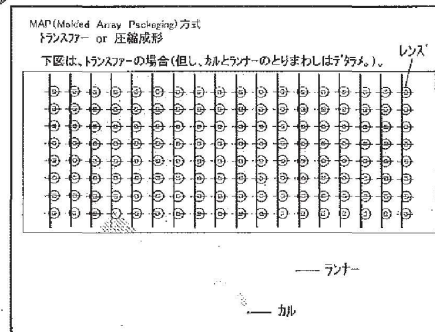 MAP(Molded Array Packaging)方式
トランスファー or 圧縮成形
下図は、トランスファーの場合(但し、カルとランナーのとりまわしはデタラメ。)。
レンズ
ランナー
カル